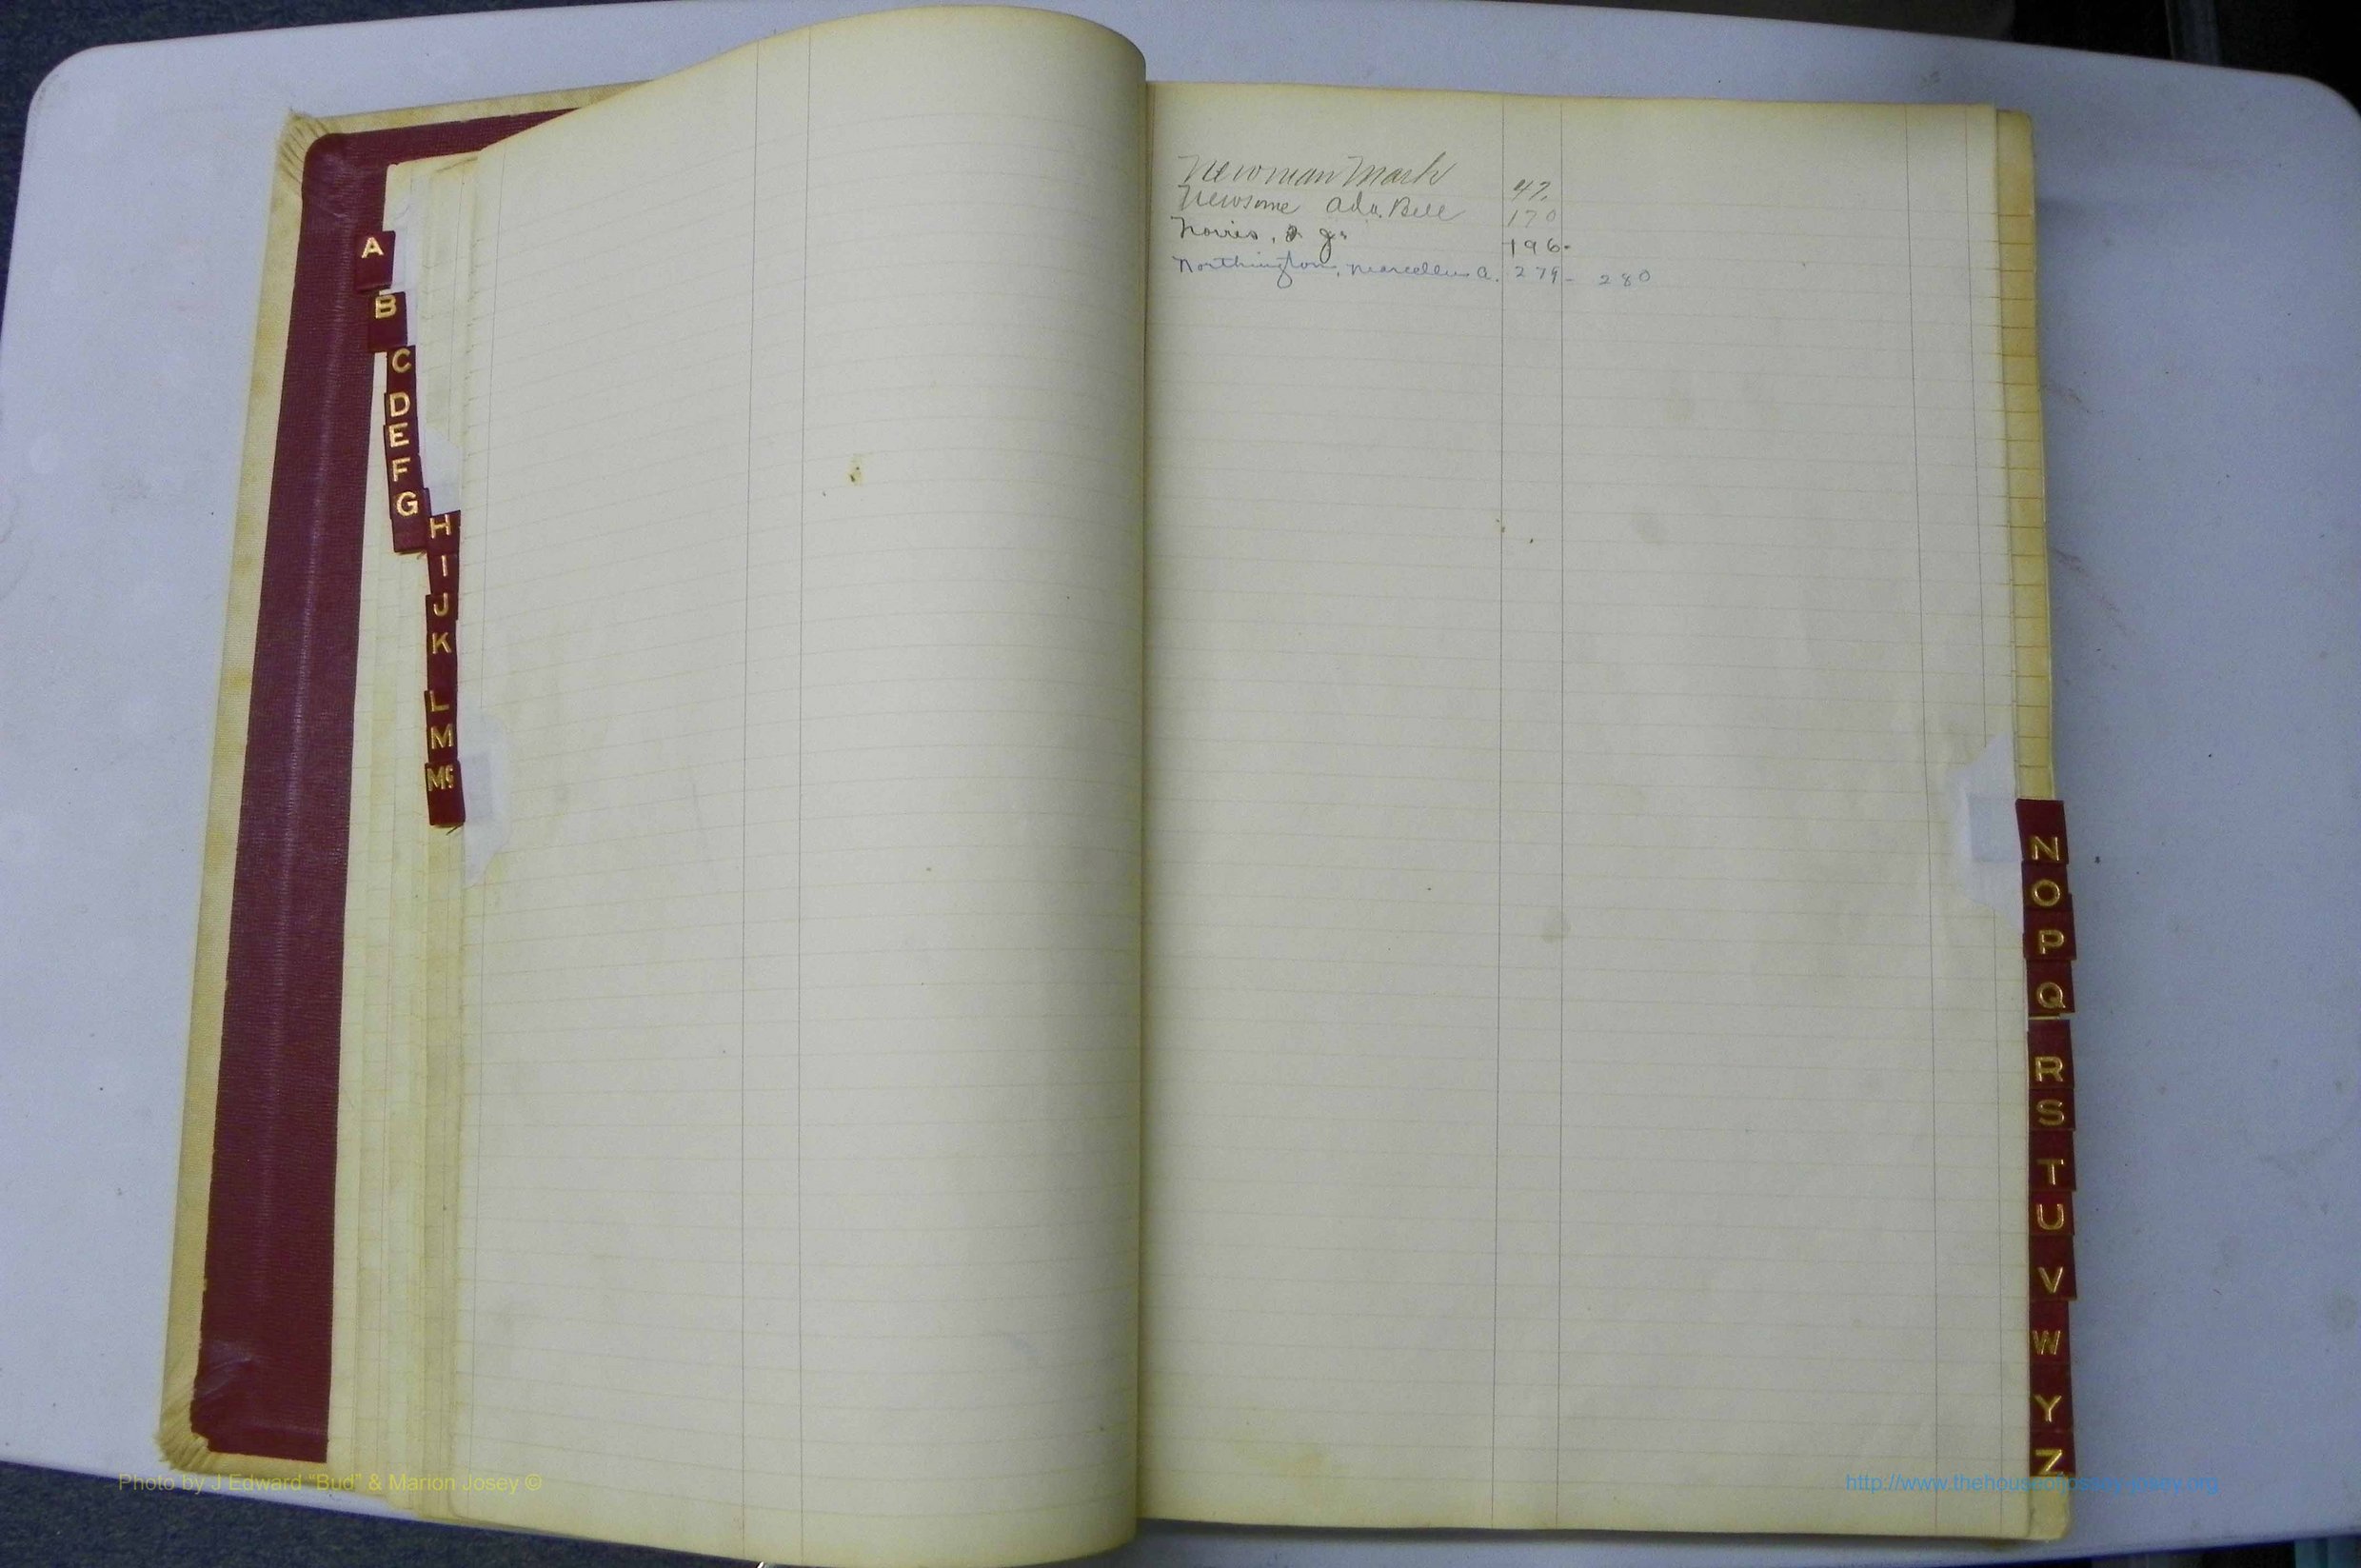 A
B
C
D
E
F
G
H
I
J
K
L
M
Mc
Newman Mark 47.
Newsome Ada. Bell 170
Norris, 196-
Northington, Marcellus A. 279- 280
N
O
P
Q
R
S
T
U
V
W
Y
Z
Photo by J Edward “Bud” & Marion Josey ©
http://www.thehouseofjossey-josey.org